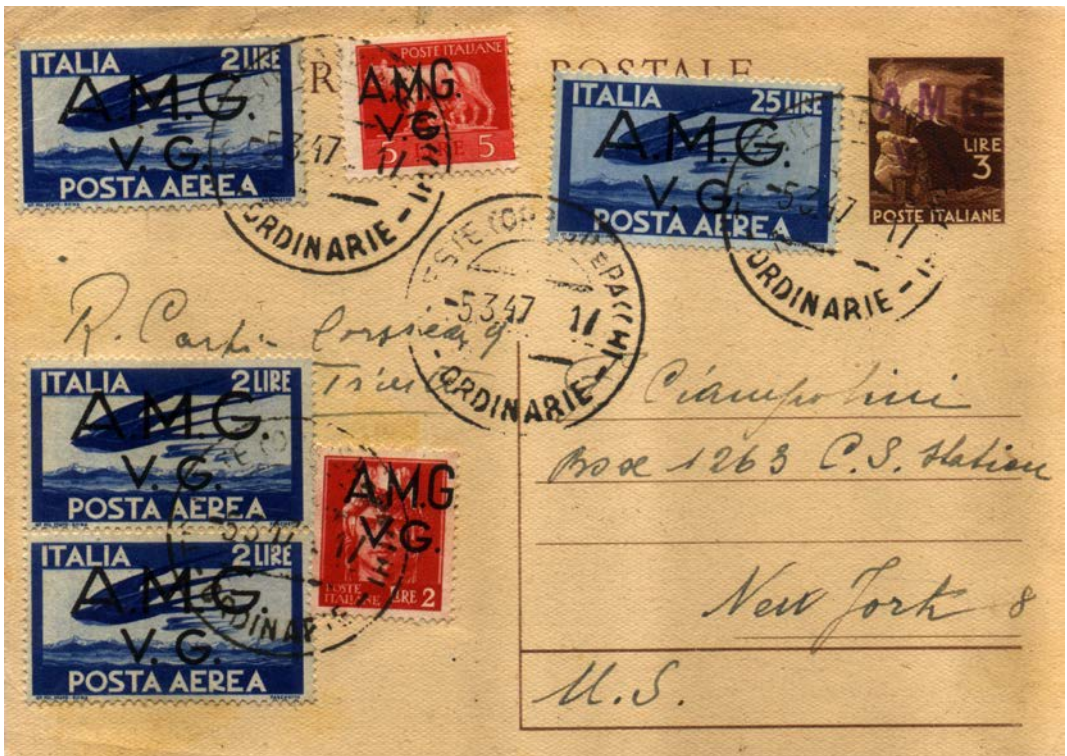 ITALIA 2 LIRE
A.M.G.
V. G.
POSTA AEREA
POSTE ITALIANE
A.M.G.
V.G.
5 LIRE 5
POSTALE
ITALIA 25 LIRE
A.M.G.
V. G.
POSTA AEREA
A M G
LIRE
3
POSTE ITALIANE
-5.3.47 17
ORDINARIE
-5.3.47 17
ORDINARIE
-5.3.47 17
ORDINARIE
R.
Trieste
ITALIA 2 LIRE
A.M.G.
V. G.
POSTA AEREA
A.M.G
V.G.
POSTE
ITALIANE LIRE 2
ITALIA 2 LIRE
A.M.G.
V. G.
POSTA AEREA
-5.3.47 17
ORDINARIE
Ciampolini
Box 1263 C.S. Station
New York 8
U.S.